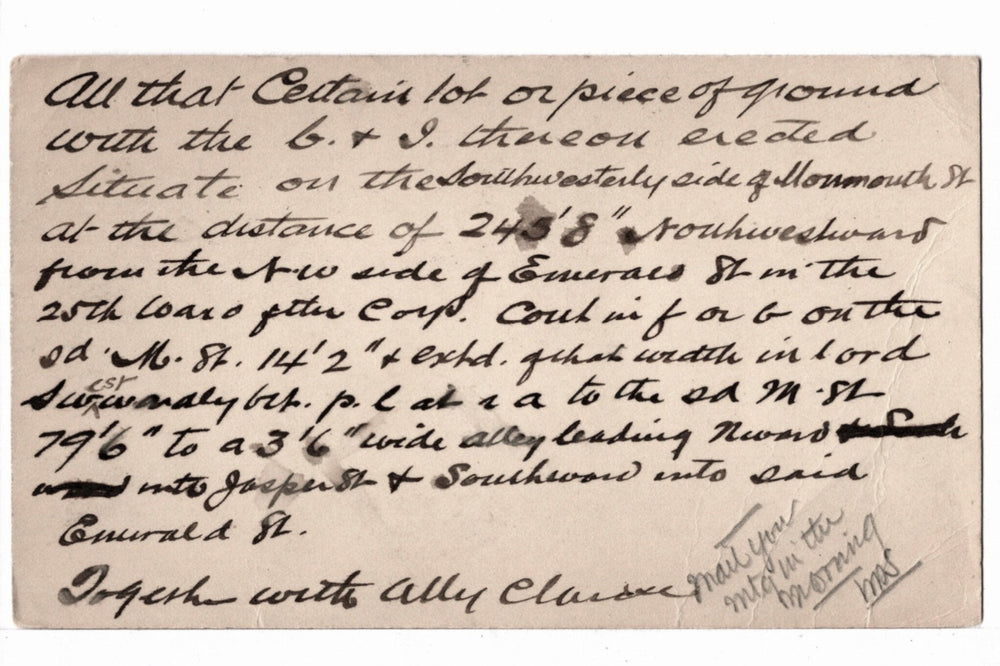 All that Certain lot or piece of ground
with the b. & I. thereon erected
Situate on the Southwesterly side of Monmouth St
at the distance of 243'8" Northwestward
from the N W side of Emerald St in the
25th Ward of the Corp. Cont in f or b on the
sd. M. St. 14'2" & extd. of that width in l or d
Swestwardly bet. p. l at r a to the sd M. St
79'6" to a 3'6" wide alley leading Nward
into Jasper St & Southward into said
Emerald St.
Together with Alley Clause
Mail you
mtg in the
morning